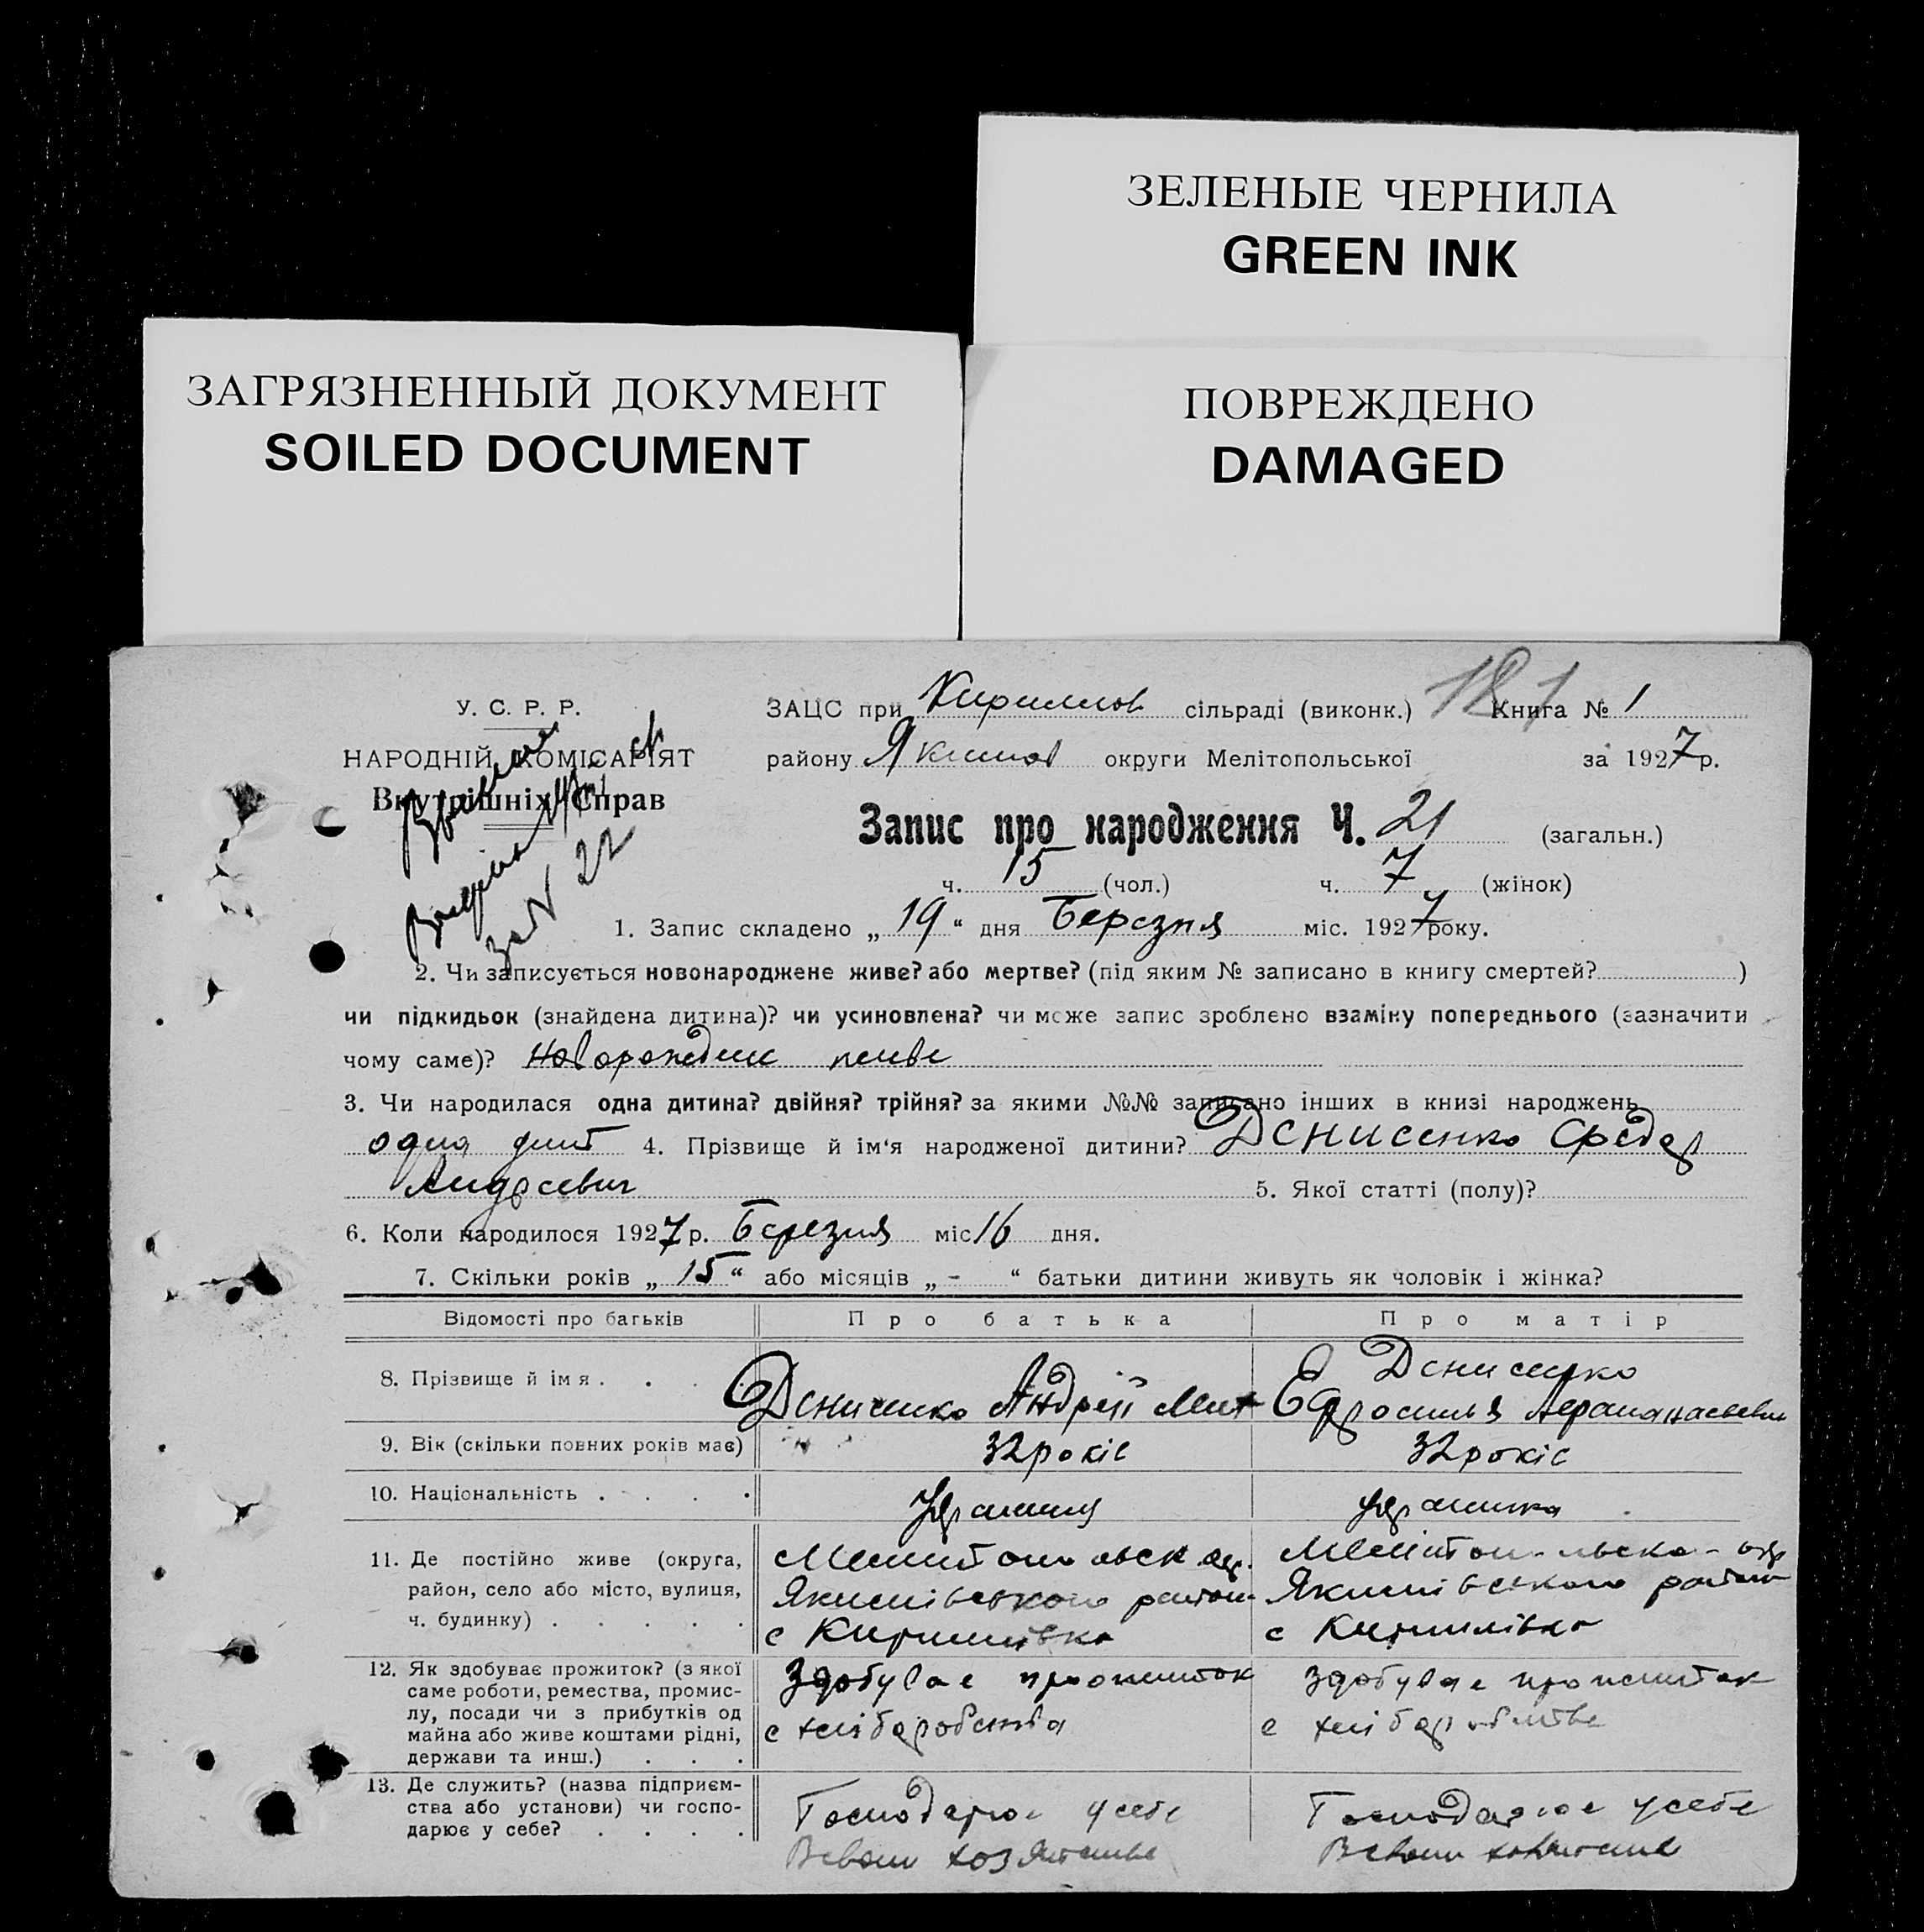 ЗЕЛЕНЫЕ ЧЕРНИЛА
GREEN INK
ЗАГРЯЗНЕННЫЙ ДОКУМЕНТ
SOILED DOCUMENT
ПОВРЕЖДЕНО
DAMAGED
У. С. Р. Р.
НАРОДНІЙ КОМІСАРІЯТ
Внутрішніх Справ
за N 22
181
ЗАЦС при Кирилов сільраді (виконк.) Книга № 1
району Якимов округи Мелітопольської за 1927 р.
Запис про народження Ч. 21 (загальн.)
ч. 15 (чол.) ч. 7 (жінок)
1. Запис складено „ 19 “ дня Березня міс. 1927 року.
2. Чи записується новонароджене живе? або мертве? (під яким № записано в книгу смертей? )
чи підкидьок (знайдена дитина)? чи усиновлена? чи може запис зроблено взаміну попереднього (зазначити
чому саме)?
3. Чи народилася одна дитина? двійня? трійня? за якими №№ записано інших в книзі народжень
одна дит 4. Прізвище й ім‘я народженої дитини? Денисенко Федор
Андреевич 5. Якої статті (полу)?
6. Коли народилося 1927 р. Березня міс 16 дня.
7. Скільки років „ 15 “ або місяців „ - “ батьки дитини живуть як чоловік і жінка?
Відомості про батьків Про батька Про матір
8. Прізвище й імя . . . Денисенко Андрій Мит Денисенко
9. Вік (скільки повних років має) 32 років 32 років
10. Національність . . . . Українка
11. Де постійно живе (округа,
район, село або місто, вулиця,
ч. будинку) . . . . .
Якимівського район
с Кирилівка
Якимівського район
с Кирилівка
12. Як здобуває прожиток? (з якої
саме роботи, ремества, промис-
лу, посади чи з прибутків од
майна або живе коштами рідні,
держави та инш.) . . .
Здобувае прожиток
с хліборобства
Здобувае прожиток
с
13. Де служить? (назва підприєм-
ства або установи) чи госпо-
дарює у себе? . . . .
Господарює у себе
Господарює у себе